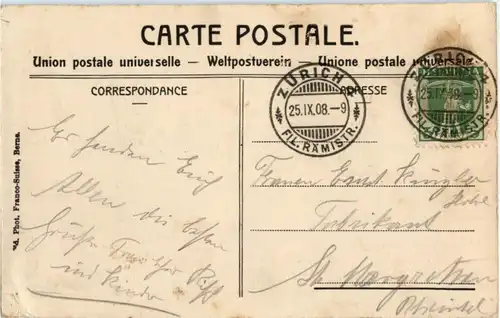 CARTE POSTALE.
Union postale universelle — Weltpostverein — Unione postale universale
CORRESPONDANCE
ADRESSE
ZÜRICH
25.IX.08.–9
FIL. RÄMISTR.
ZÜRICH
25.IX.08.–9
FIL. RÄMISTR.
Ed. Phot. Franco-Suisse, Berne.
Es senden Euch
Allen die besten
Grüße
und Kinder
Ernst Künzler
Fabrikant
St. Margrethen
Rheintal